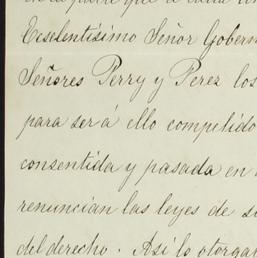 Eccelentísimo Señor Gobern
Señores Perry y Perez los
para ser á ello compelido
consentida y pasada en
renuncian las leyes de su
del derecho. Así lo otorgar